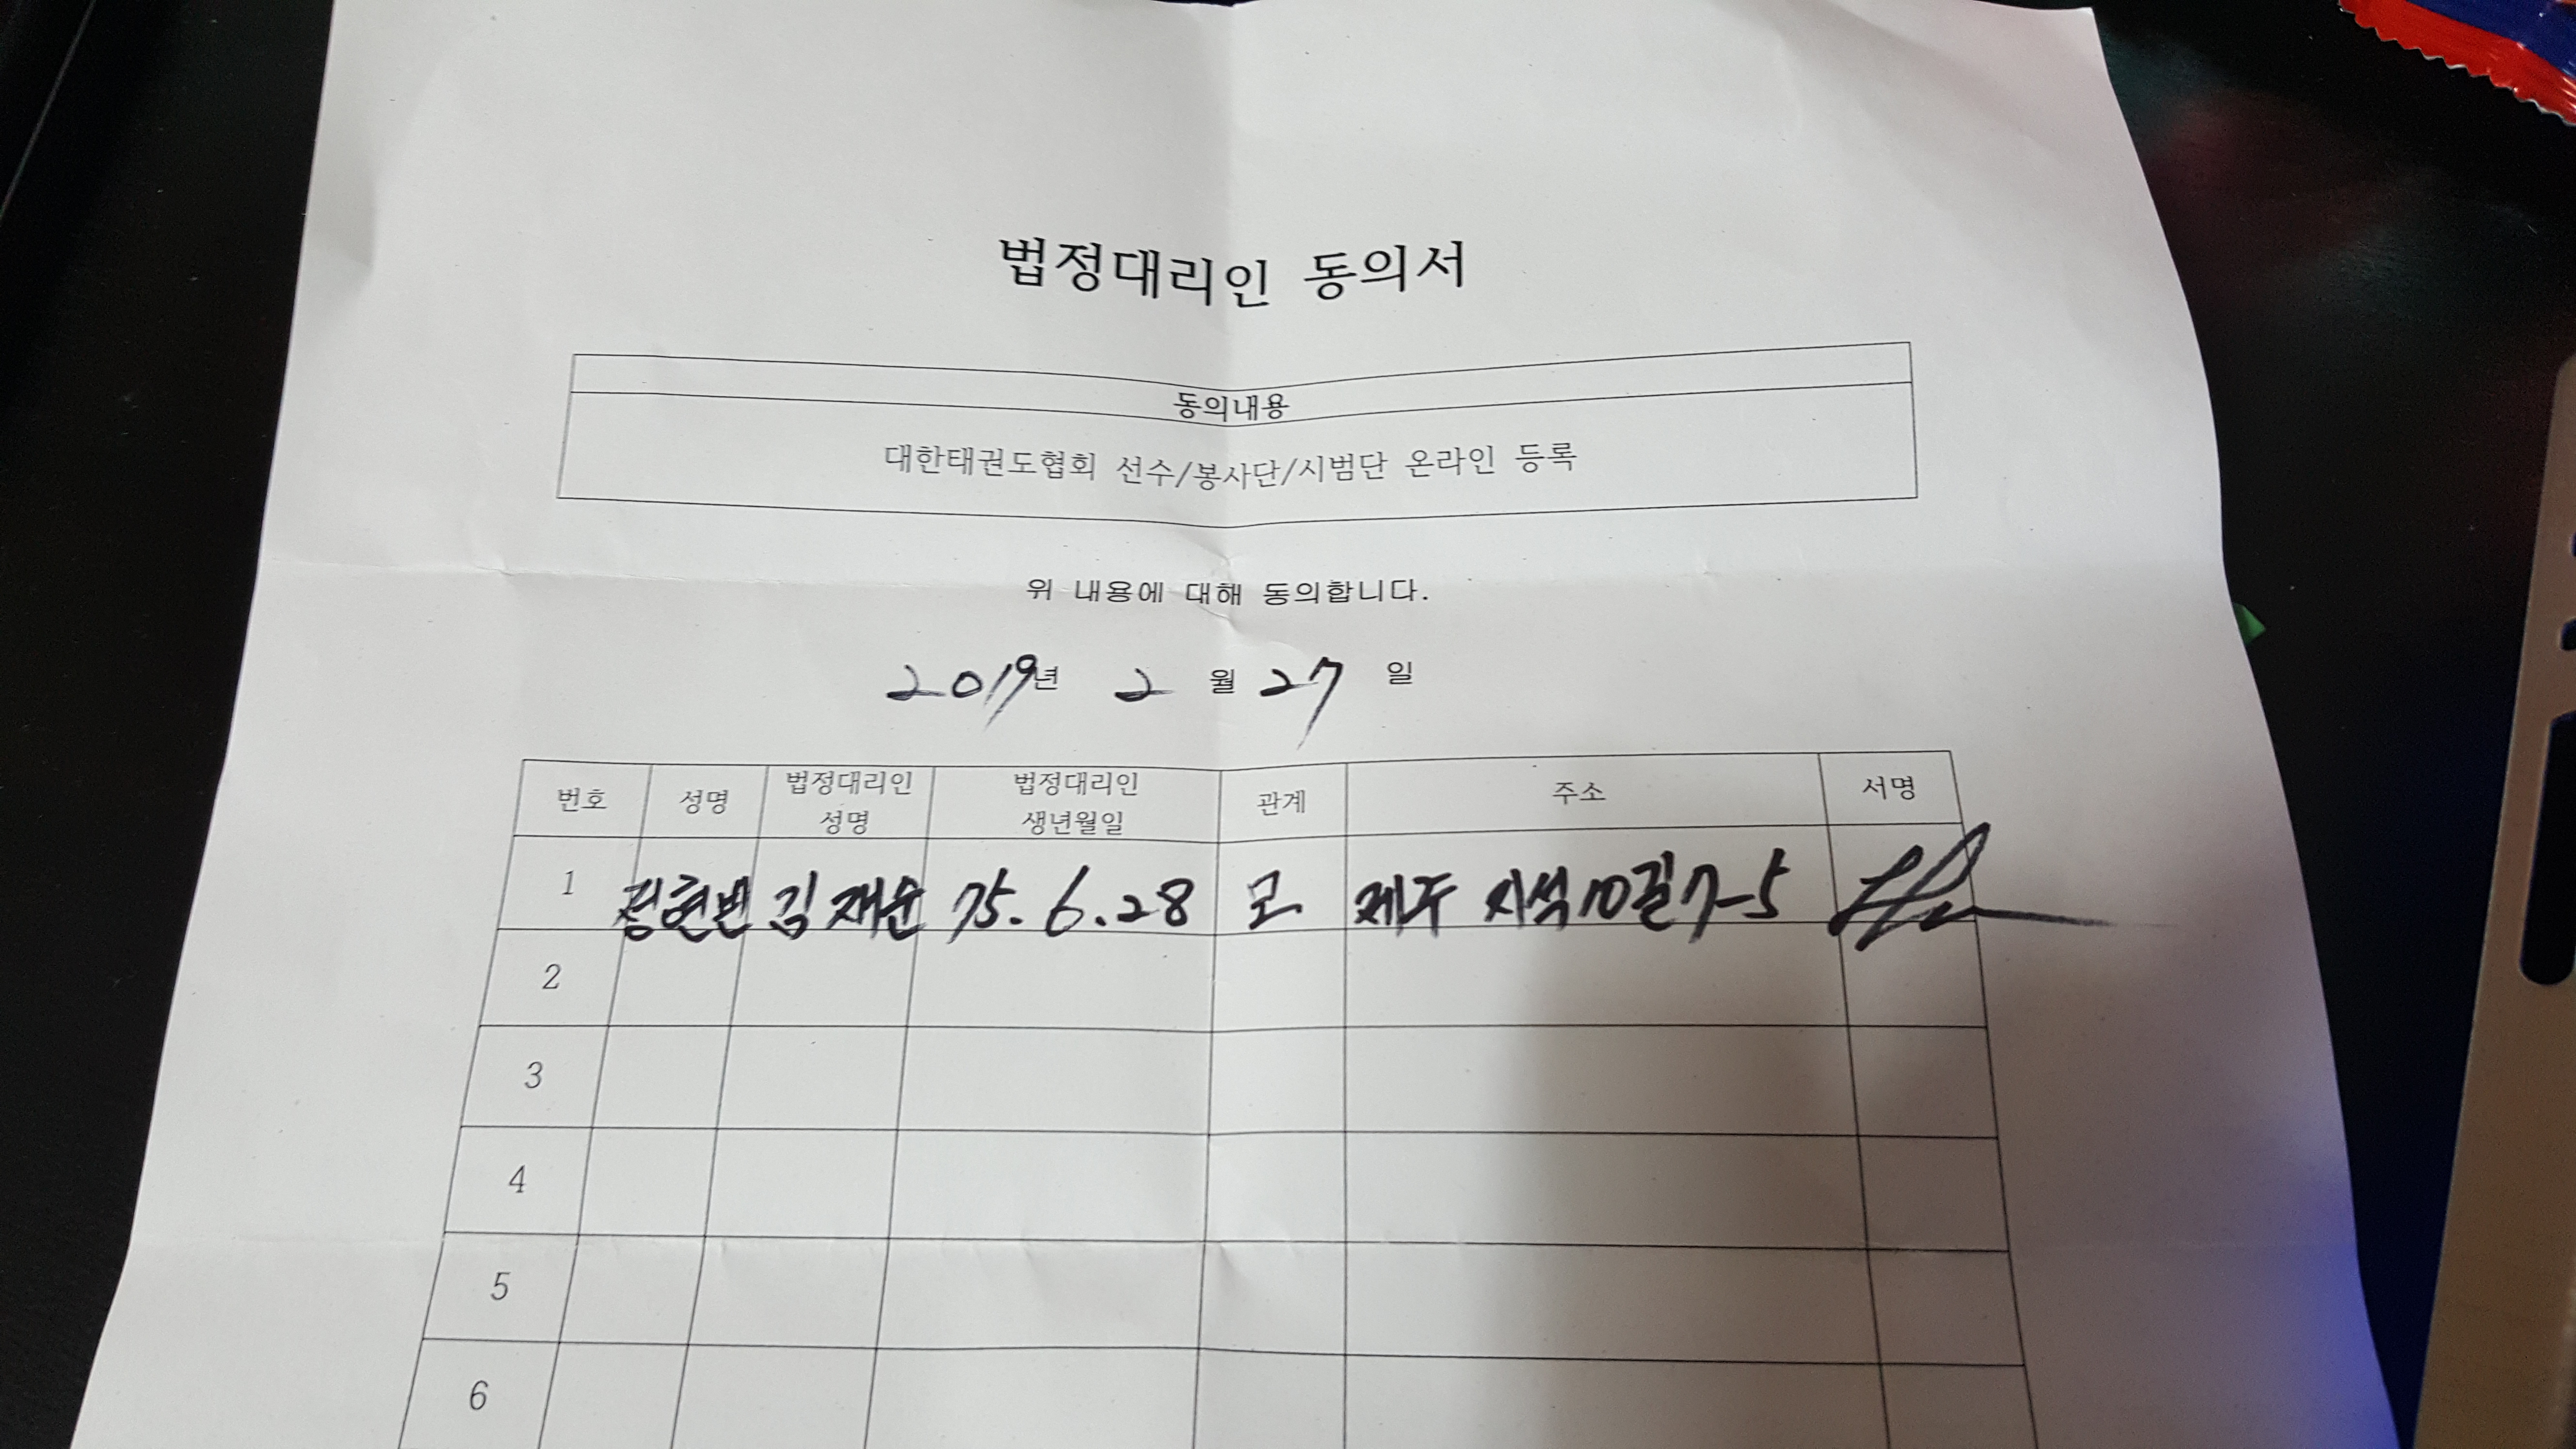 법정대리인 동의서
동의내용
대한태권도협회 선수/봉사단/시범단 온라인 등록
위 내용에 대해 동의합니다.
2019년 2 월 27 일
번호 성명 법정대리인 성명 법정대리인 생년월일 관계 주소 서명
1 정현빈 김재순 75.6.28 모 제주 지석10길7-5
2
3
4
5
6